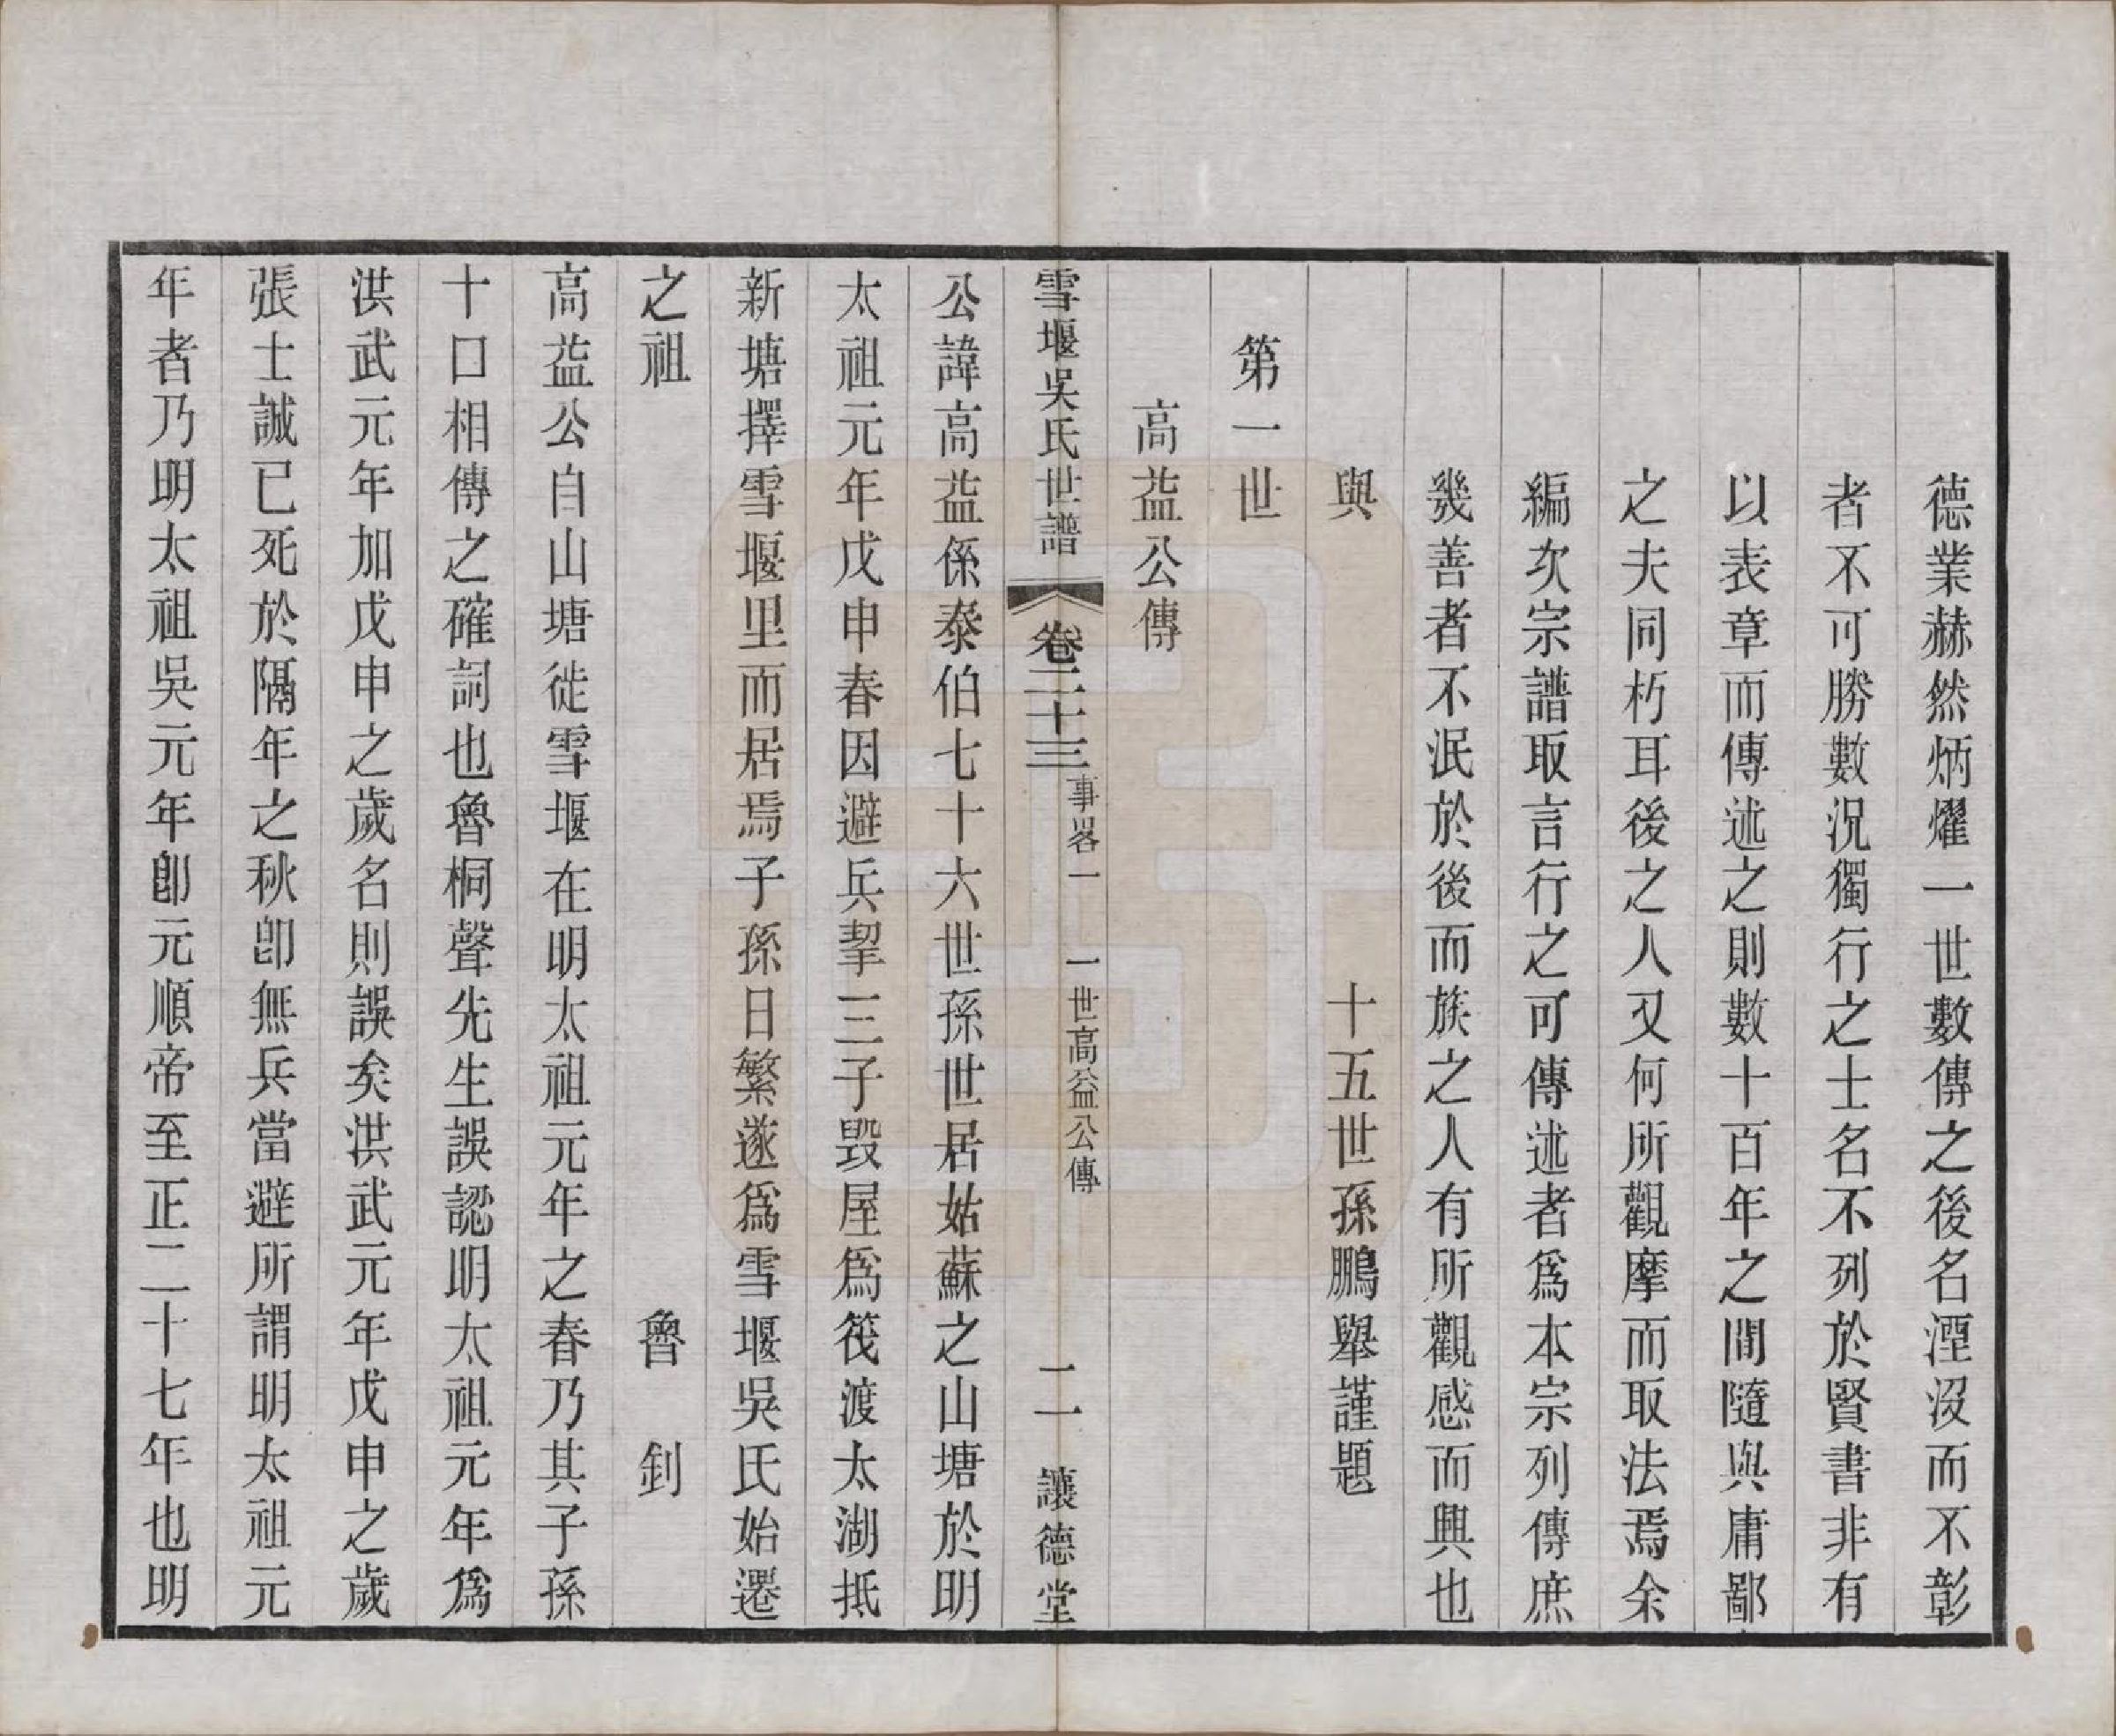 德業赫然炳燿一世數傳之後名湮沒而不彰
者不可勝數況獨行之士名不列於賢書非有
以表章而傳述之則數十百年之間隨與庸鄙
之夫同朽耳後之人又何所觀摩而取法焉余
編次宗譜取言行之可傳述者爲本宗列傳庶
幾善者不泯於後而族之人有所觀感而興也
與　十五世孫鵬舉謹題
第一世
高益公傳
雪堰吳氏世譜　卷二十三　事畧一　一世高益公傳　二一　讓德堂
公諱高益係泰伯七十六世孫世居姑蘇之山塘於明
太祖元年戊申春因避兵挈三子毀屋爲筏渡太湖抵
新塘擇雪堰里而居焉子孫日繁遂爲雪堰吳氏始遷
之祖　魯　釗
高益公自山塘徙雪堰在明太祖元年之春乃其子孫
十口相傳之確詞也魯桐聲先生誤認明太祖元年爲
洪武元年加戊申之歲名則誤矣洪武元年戊申之歲
張士誠已死於隔年之秋卽無兵當避所謂明太祖元
年者乃明太祖吳元年卽元順帝至正二十七年也明